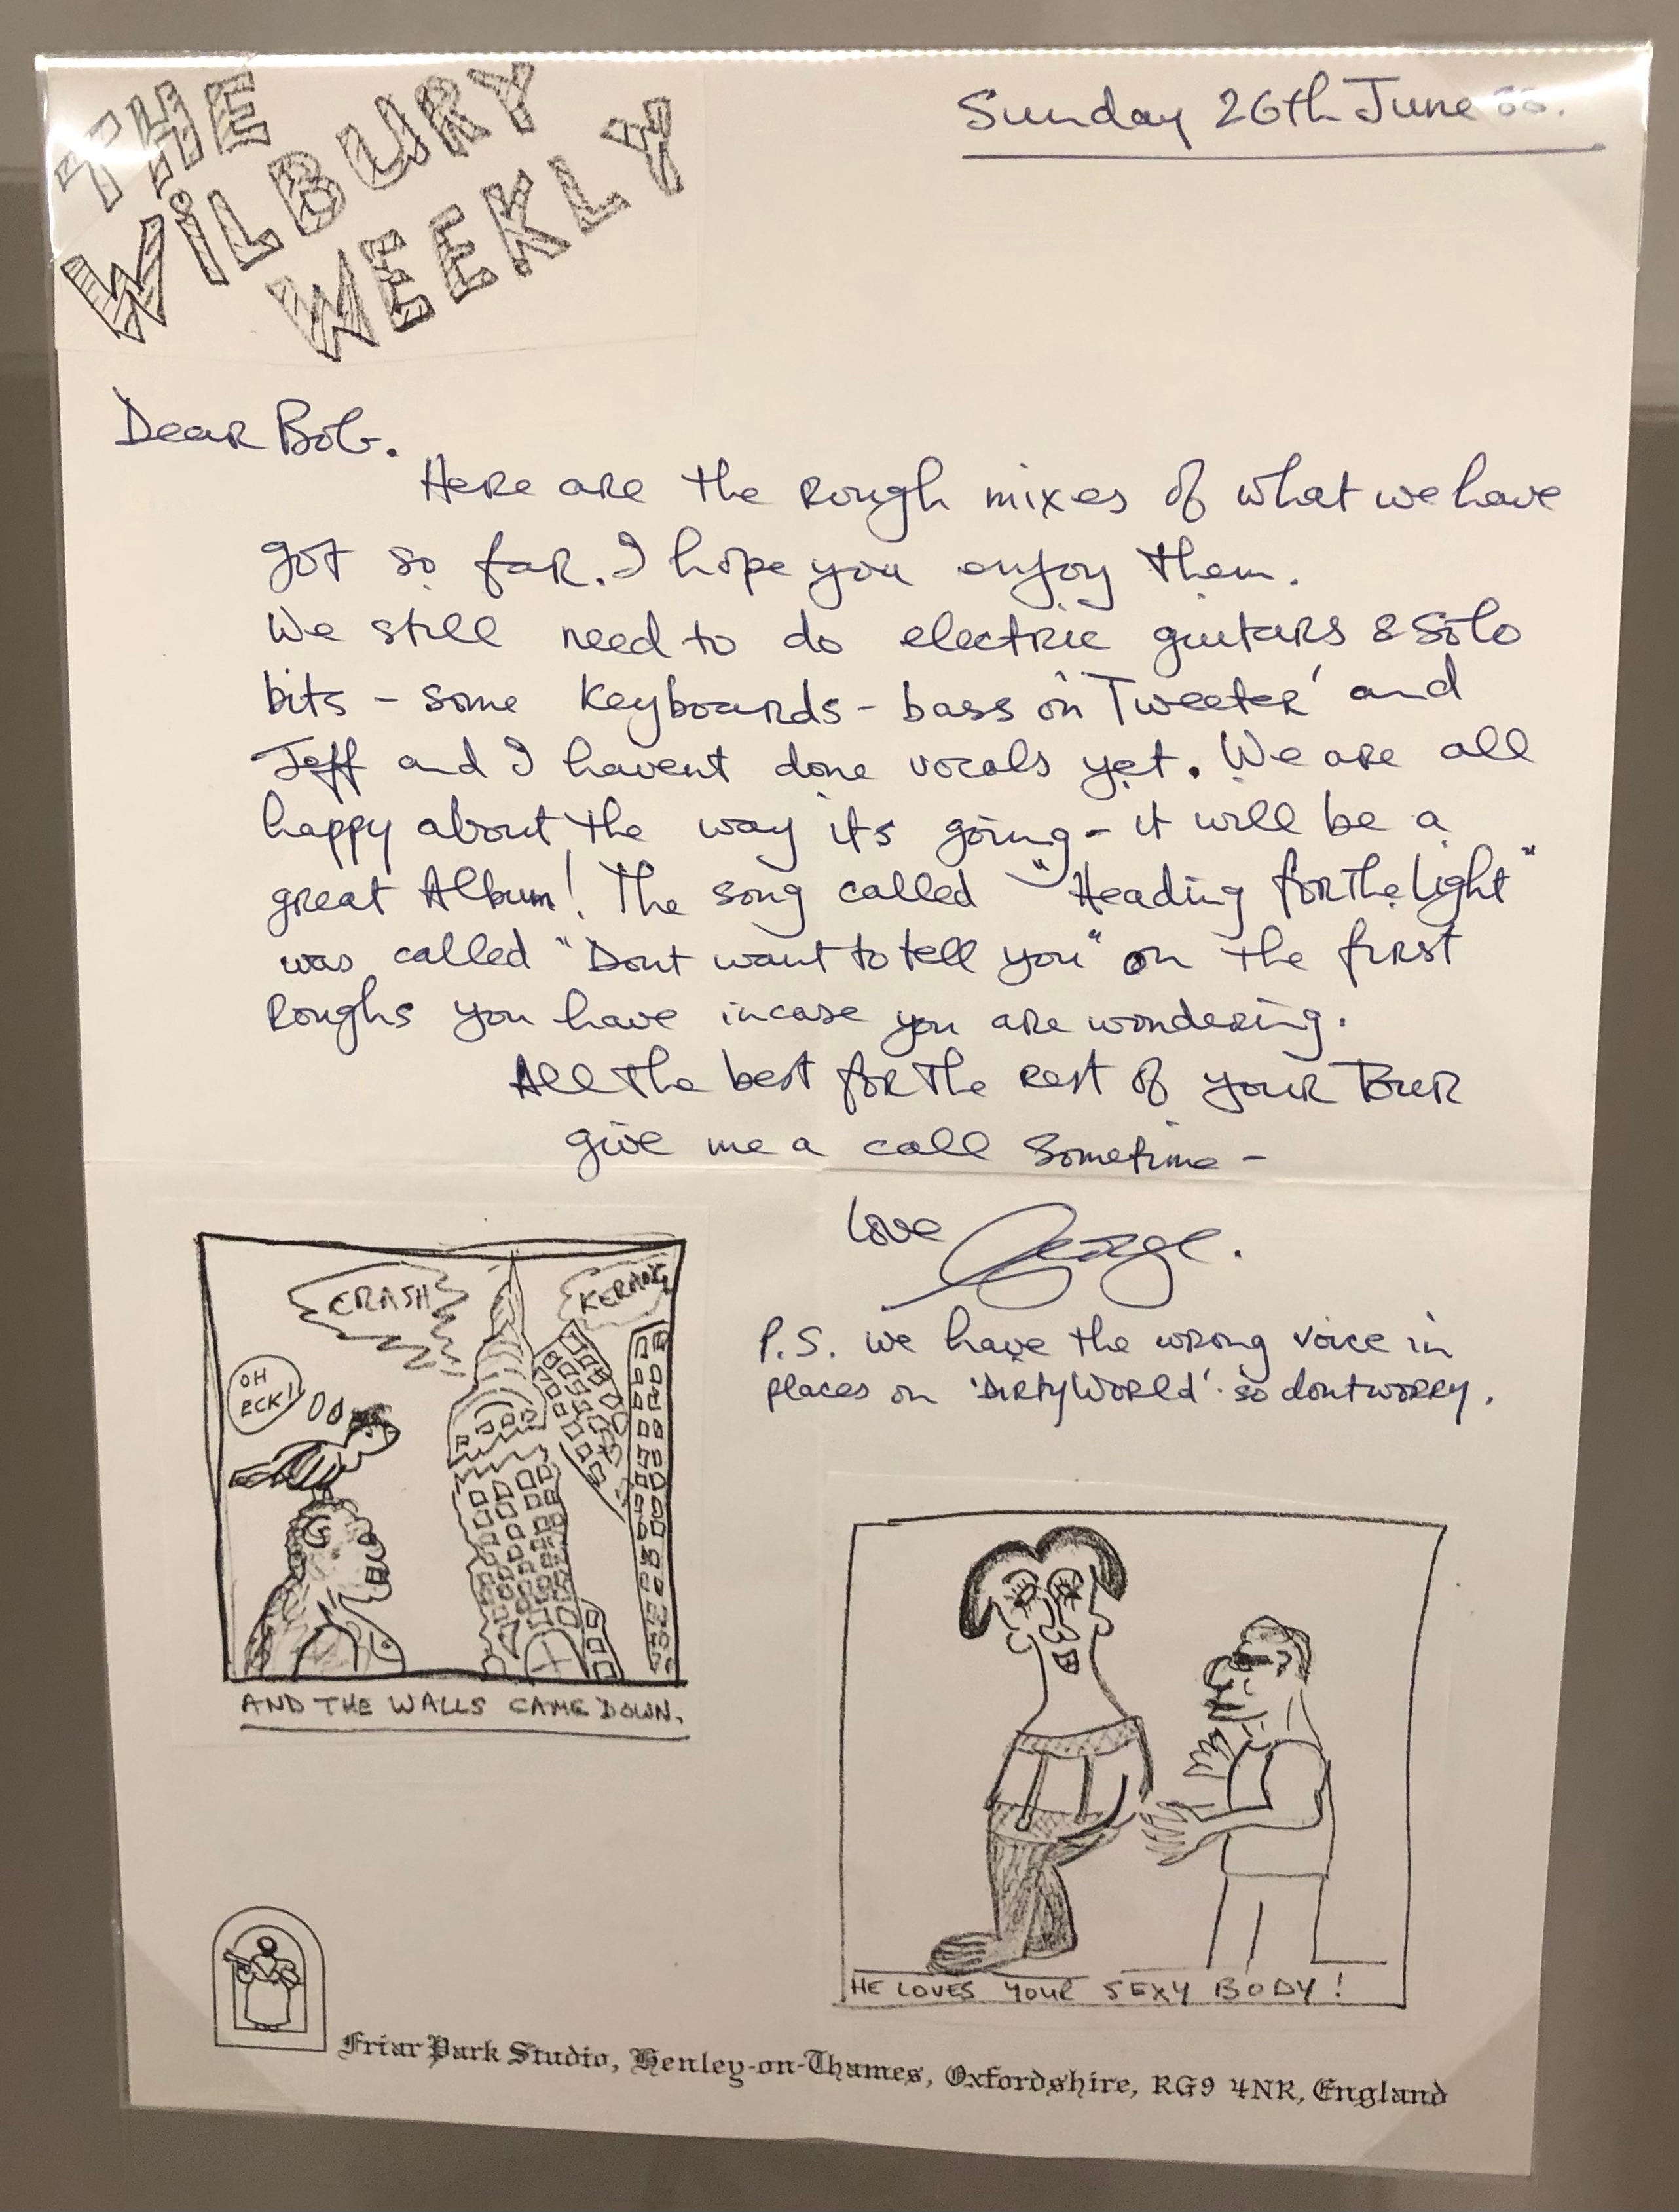 THE
WILBURY
WEEKLY
Sunday 26th June 88.
Dear Bob.
Here are the rough mixes of what we have
got so far. I hope you enjoy them.
We still need to do electric guitars & solo
bits - some keyboards - bass on 'Tweeter' and
Jeff and I havent done vocals yet. We are all
happy about the way its going - it will be a
great Album! The song called "Heading for the Light"
was called "Dont want to tell you" on the first
roughs you have incase you are wondering.
All the best for the rest of your Tour
give me a call sometime -
Love George.
P.S. we have the wrong voice in
places on 'Dirty World' so dont worry.
CRASH
KERANG
OH
ECK!
AND THE WALLS CAME DOWN.
HE LOVES YOUR SEXY BODY!
Friar Park Studio, Henley-on-Thames, Oxfordshire, RG9 4NR, England